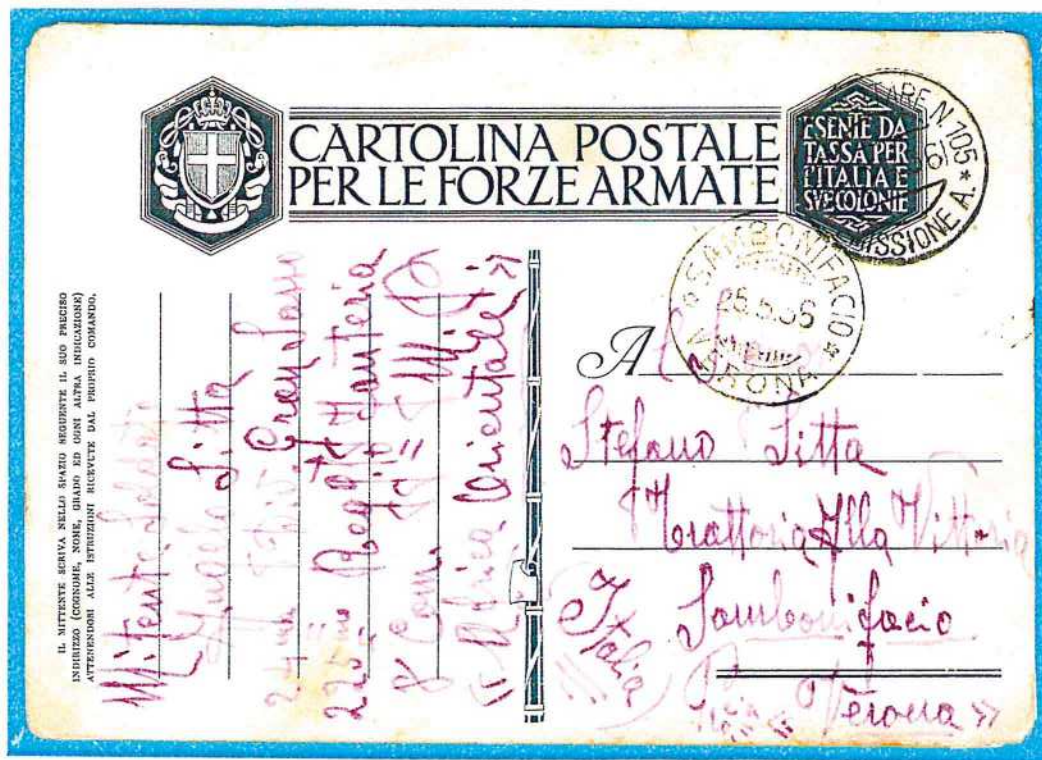 CARTOLINA POSTALE
PER LE FORZE ARMATE
ESENTE DA
TASSA PER
L'ITALIA E
SVE COLONIE
TARE N. 105 * MISSIONE A.
* SAMBONIFACIO *
25.5.36
VERONA
IL MITTENTE SCRIVA NELLO SPAZIO SEGUENTE IL SUO PRECISO
INDIRIZZO (COGNOME, NOME, GRADO ED OGNI ALTRA INDICAZIONE)
ATTENENDOSI ALLE ISTRUZIONI RICEVUTE DAL PROPRIO COMANDO.
Mittente Soldato
Sitta
Gran Sasso
225mo Regg Fanteria
8 Com
« Africa Orientale »
A
Stefano Sitta
Trattoria Alla Vittoria
Sambonifacio
Italia
Verona »